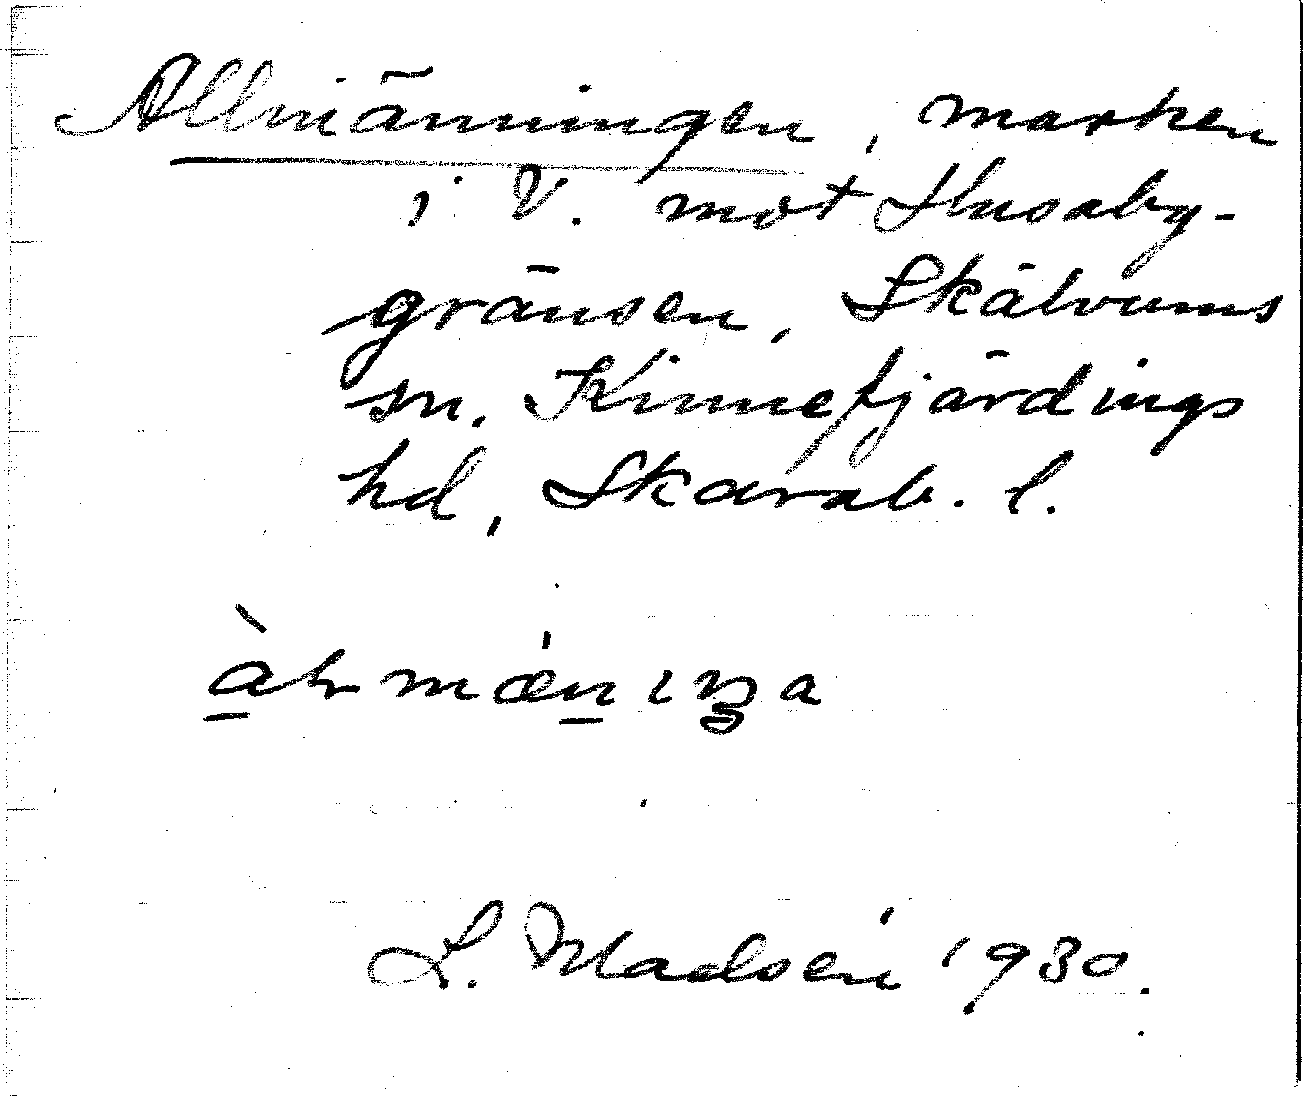 Allmänningen, marken
i V. mot Husaby-
gränsen, Skälvums
sn. Kinnefjärdings
hd, Skarab. l.
L. Madsén 1930.